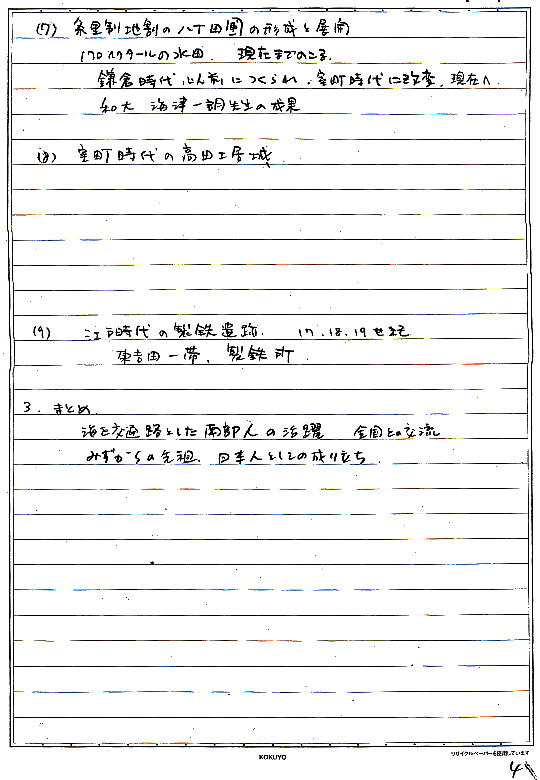 (7) 条里制地割の八丁田圃の形成と展開
170ヘクタールの水田、現在までのこる。
鎌倉時代以前につくられ、室町時代に改変、現在へ
和大 海津一朗先生の成果
(8) 室町時代の高田土居城
(9) 江戸時代の製鉄遺跡. 17.18.19世紀
東吉田一帯、製鉄所.
3. まとめ
海を交通路とした南部人の活躍 全国との交流
みずからの先祖、日本人としての成り立ち
KOKUYO
リサイクルペーパーを使用しています
4